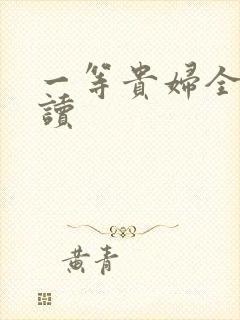 一等貴婦全
讀
黃青